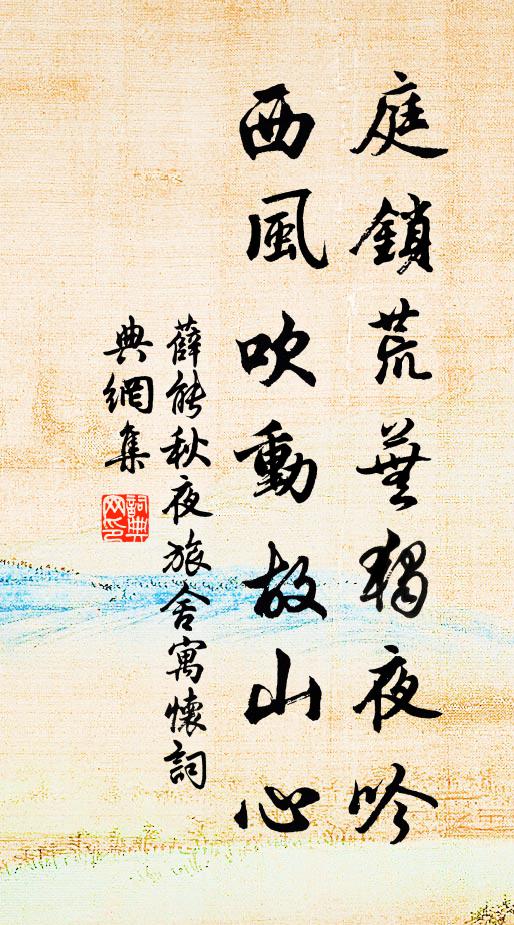 庭鎖荒蕪獨夜吟
西風吹動故山心
薛能秋夜旅舍寓懷詞
典網集
詞典
网印